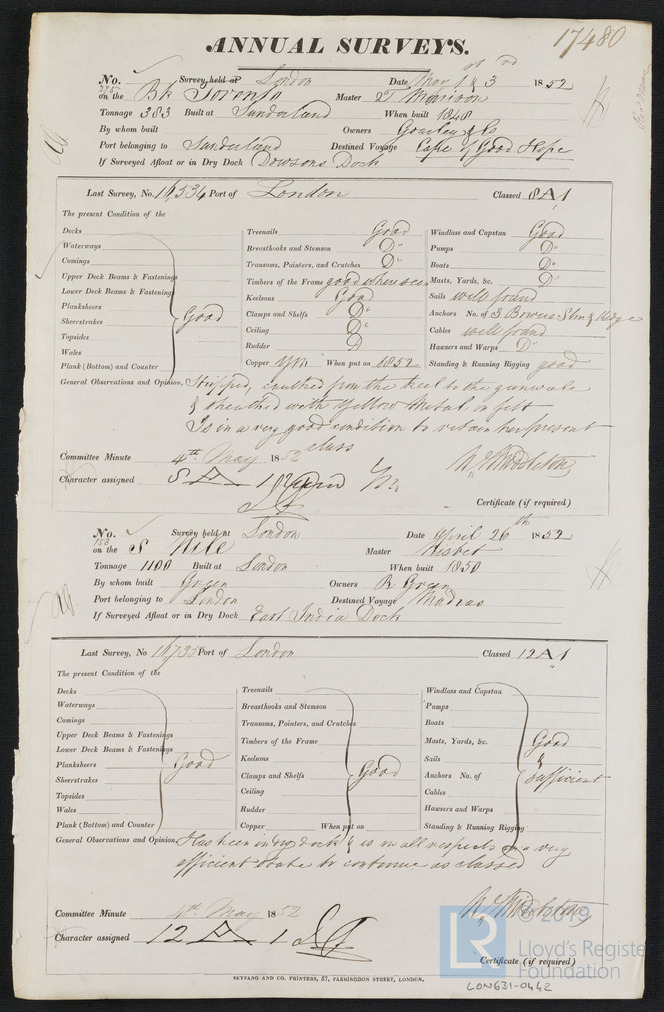 17480
ANNUAL SURVEYS.
No. 275 Survey held at London Date May 1st & 3rd 1852
on the Bk Toronto Master T Morison
Tonnage 383 Built at Sunderland When built 1848
By whom built Owners Gourley & Co
Port belonging to Sunderland Destined Voyage Cape of Good Hope
If Surveyed Afloat or in Dry Dock Dowsons Dock
Last Survey, No. 16534 Port of London Classed 8 A 1
The present Condition of the
Decks
Waterways
Comings
Upper Deck Beams & Fastenings
Lower Deck Beams & Fastenings
Planksheers
Sheerstrakes
Topsides
Wales
Plank (Bottom) and Counter
Good
Treenails Good
Breasthooks and Stemson Do
Transoms, Pointers, and Crutches Do
Timbers of the Frame good where seen
Keelsons Good
Clamps and Shelfs Do
Ceiling Do
Rudder Do
Copper YM When put on 1852
Windlass and Capstan Good
Pumps Do
Boats Do
Masts, Yards, &c. Do
Sails well found
Anchors No. of 3 Bowers Strm & Kedge
Cables well found
Hawsers and Warps Do
Standing & Running Rigging good
General Observations and Opinion, Stripped, caulked from the keel to the gunwale
& sheathed with Yellow Metal on felt
Is in a very good condition to retain her present
class
Committee Minute 4th May 1852
Character assigned 8 A 1
Certificate (if required)
No. 158 Survey held at London Date April 26th 1852
on the S Nile Master Nesbet
Tonnage 1100 Built at London When built 1850
By whom built Green Owners R Green
Port belonging to London Destined Voyage Madras
If Surveyed Afloat or in Dry Dock East India Dock
Last Survey, No Port of London Classed 12 A 1
The present Condition of the
Decks
Waterways
Comings
Upper Deck Beams & Fastenings
Lower Deck Beams & Fastenings
Planksheers
Sheerstrakes
Topsides
Wales
Plank (Bottom) and Counter
Good
Treenails
Breasthooks and Stemson
Transoms, Pointers, and Crutches
Timbers of the Frame
Keelsons
Clamps and Shelfs
Ceiling
Rudder
Copper When put on
Good
Windlass and Capstan
Pumps
Boats
Masts, Yards, &c.
Sails
Anchors No. of
Cables
Hawsers and Warps
Standing & Running Rigging
Good
&
sufficient
General Observations and Opinion, Has been in dry dock & is in all respects in a very
efficient state to continue as classed
Committee Minute 4th May 1852
Character assigned 12 A 1
Certificate (if required)
SEYFANG AND CO. PRINTERS, 57, FARRINGDON STREET, LONDON.
LR
© 2019
Lloyd's Register
Foundation
LON631-0442